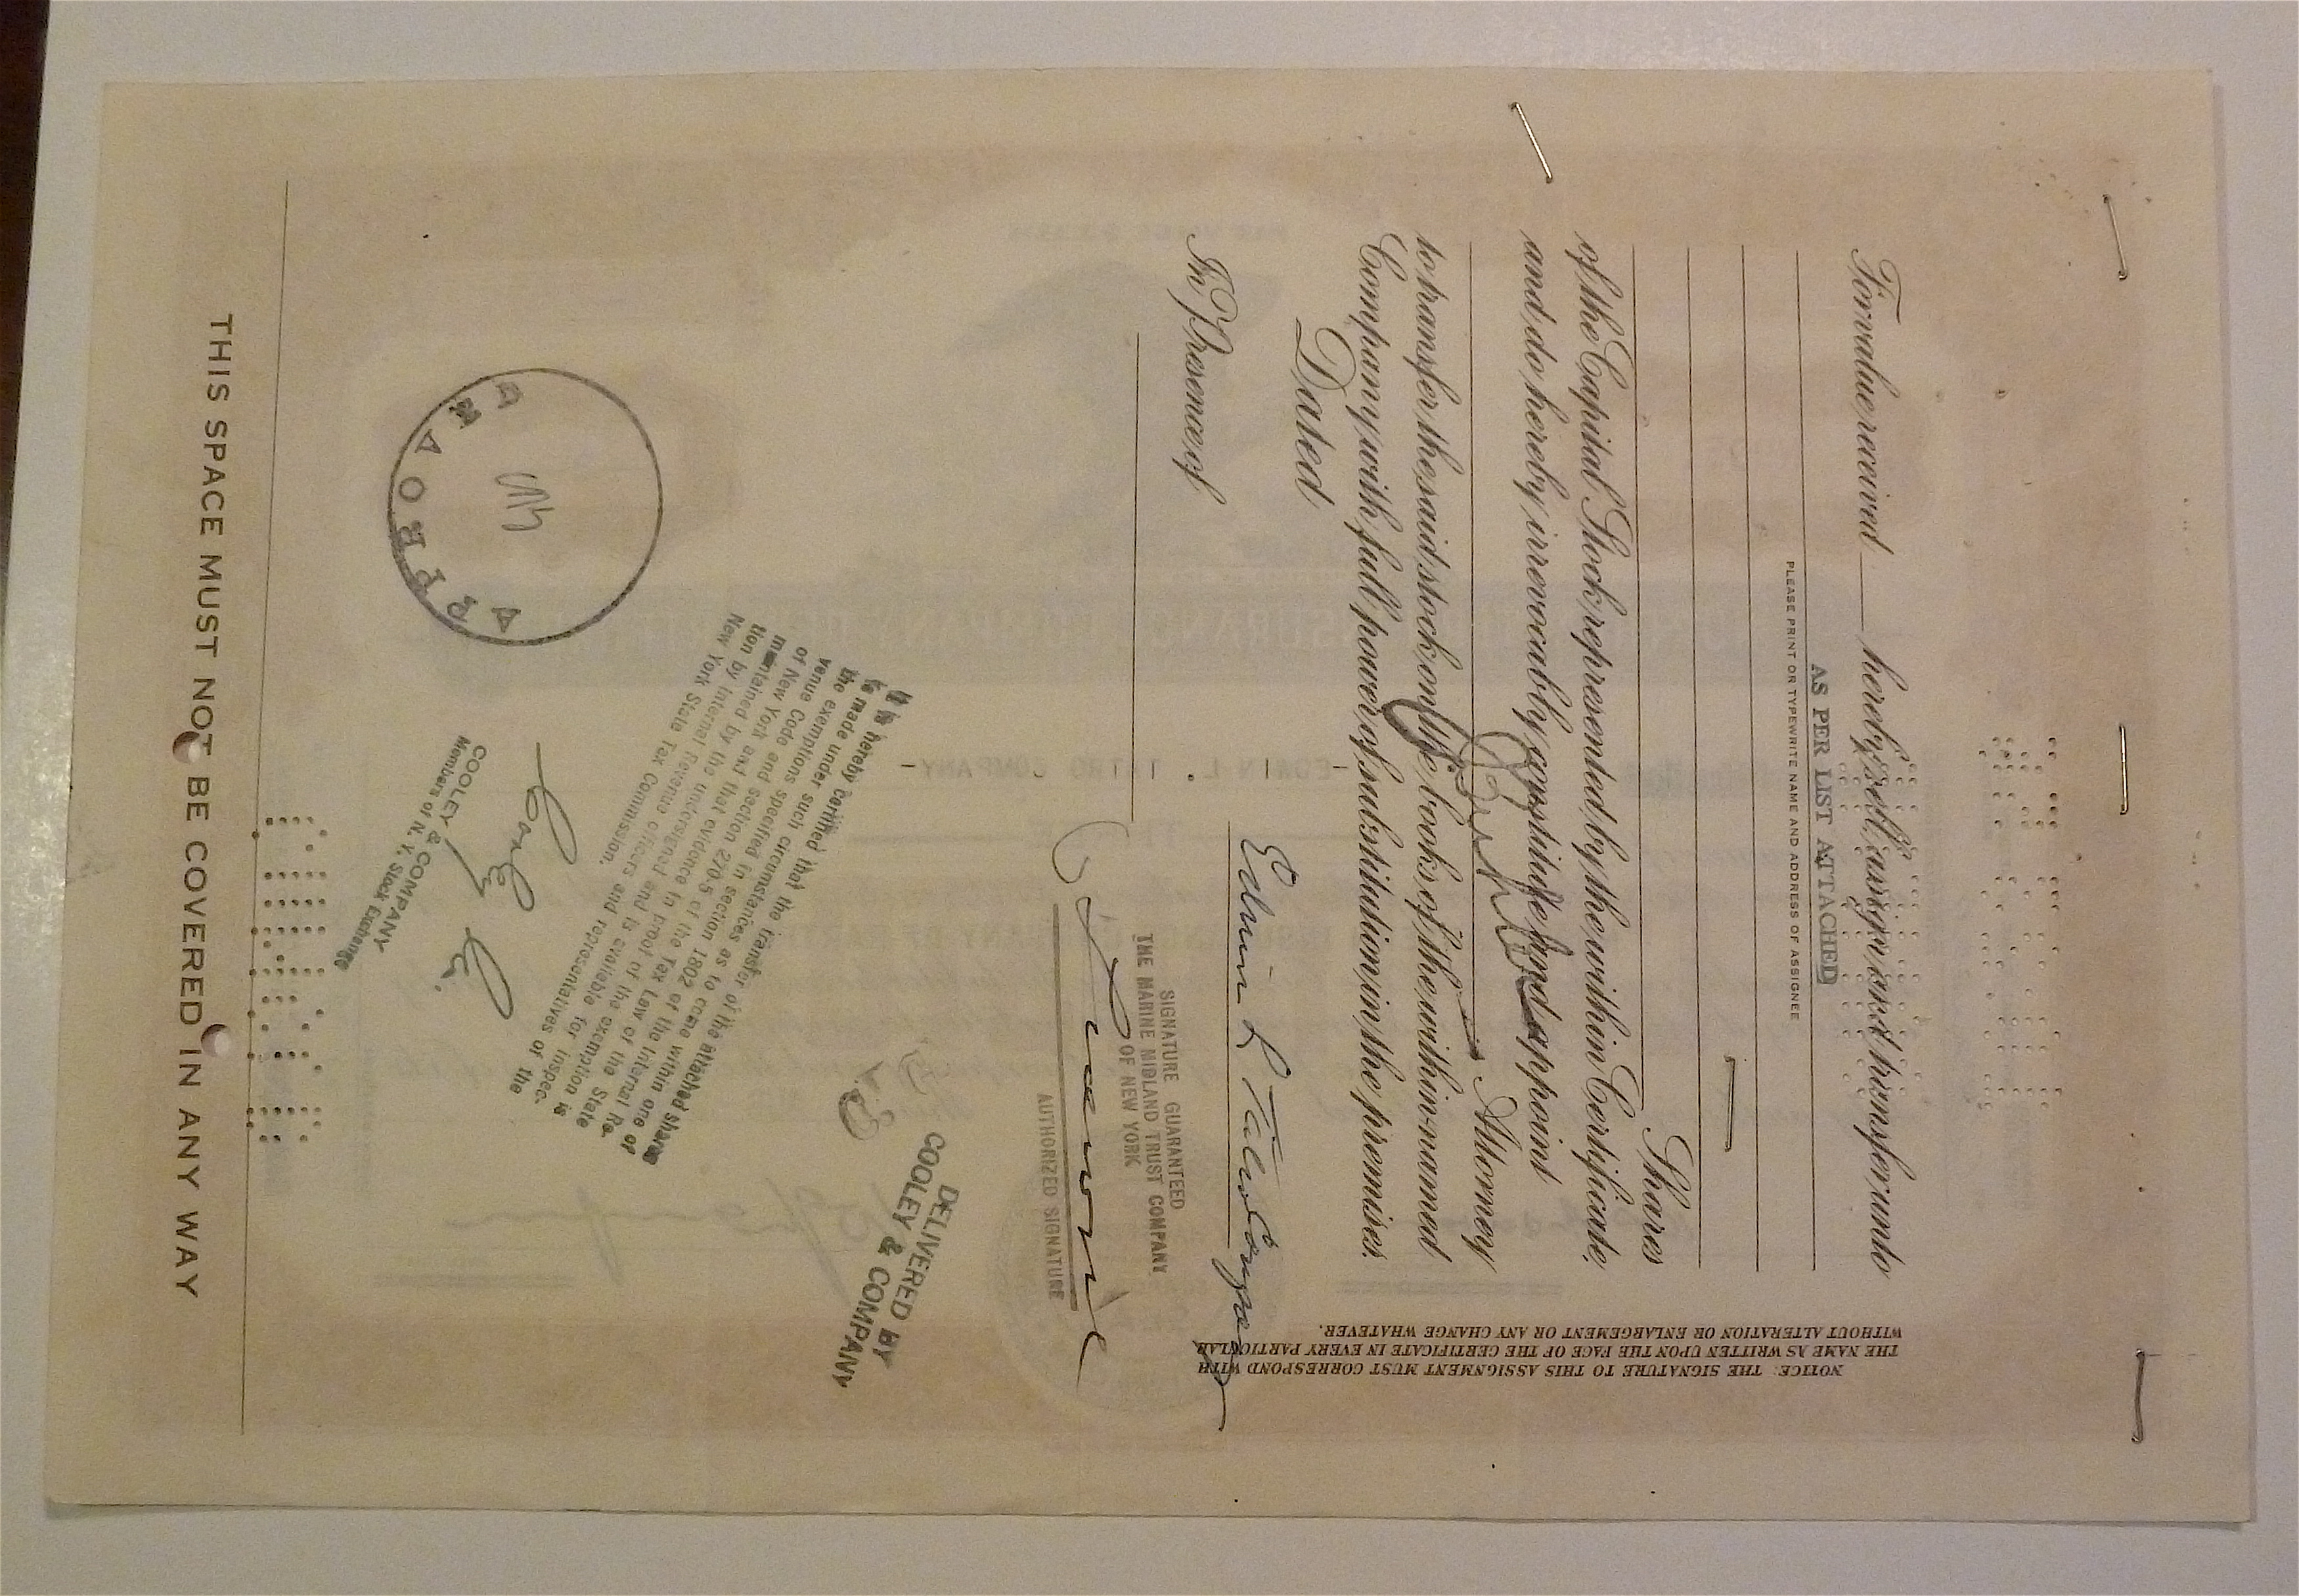 For value received hereby sell, assign and transfer unto
AS PER LIST ATTACHED
PLEASE PRINT OR TYPEWRITE NAME AND ADDRESS OF ASSIGNEE
Shares
of the Capital Stock represented by the within Certificate,
and do hereby irrevocably constitute and appoint
Attorney
to transfer the said stock on the books of the within-named
Company with full power of substitution in the premises.
Dated
In Presence of
Edwin L Tatro Company
NOTICE: THE SIGNATURE TO THIS ASSIGNMENT MUST CORRESPOND WITH
THE NAME AS WRITTEN UPON THE FACE OF THE CERTIFICATE IN EVERY PARTICULAR
WITHOUT ALTERATION OR ENLARGEMENT OR ANY CHANGE WHATEVER.
SIGNATURE GUARANTEED
THE MARINE MIDLAND TRUST COMPANY
OF NEW YORK
AUTHORIZED SIGNATURE
DELIVERED BY
COOLEY & COMPANY
It is hereby certified that the transfer of the attached shares
is made under such circumstances as to come within one of
the exemptions specified in section 1802 of the Internal Re-
venue Code and section 270.5 of the Tax Law of the State
of New York and that evidence in proof of the exemption is
maintained by the undersigned and is available for inspec-
tion by Internal Revenue officers and representatives of the
New York State Tax Commission.
COOLEY & COMPANY
Members of N. Y. Stock Exchange
APPROVED
THIS SPACE MUST NOT BE COVERED IN ANY WAY
-EDWIN L. TATRO COMPANY-